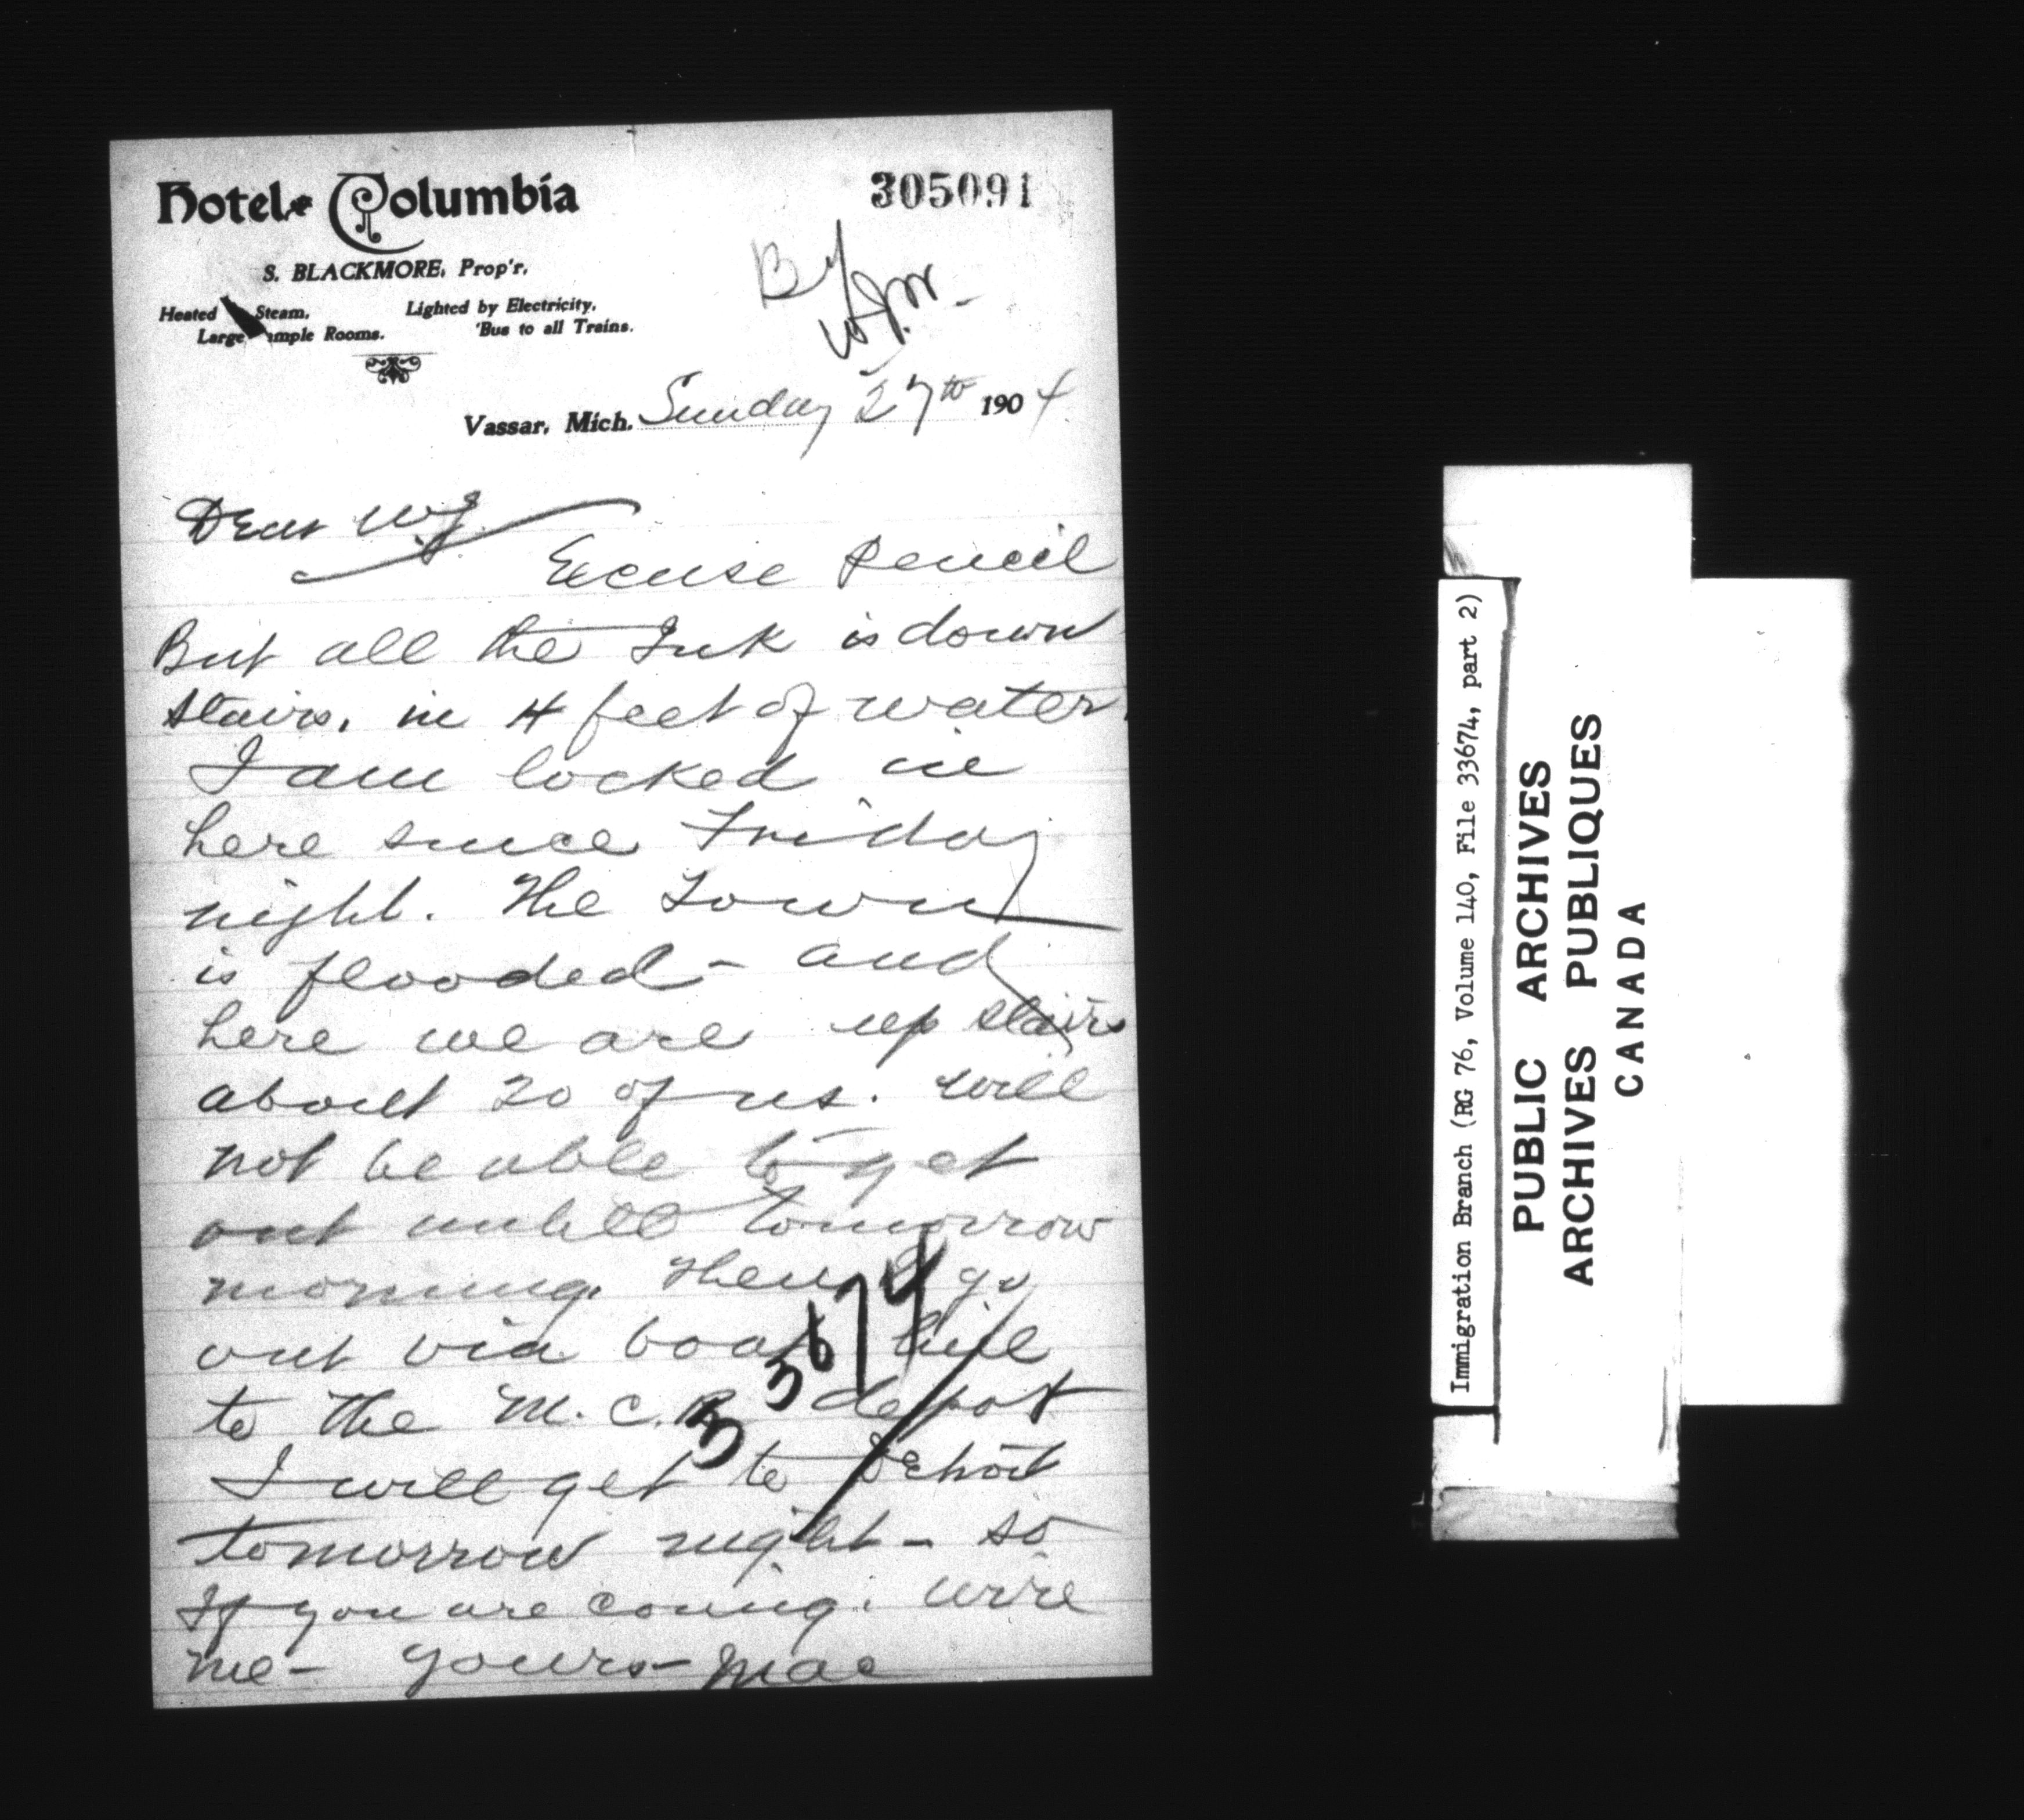 Hotel Columbia
305091
S. BLACKMORE, Prop'r.
Heated Steam. Lighted by Electricity.
Large ample Rooms. 'Bus to all Trains.
Vassar, Mich. Sunday 27th 1904
Dear WJ.
Excuse Pencil
But all the Ink is down
stairs. in 4 feet of water.
I am locked in
here since Friday
night. The Town
is flooded - and
here we are up stairs
about 20 of us. will
not be able to get
out untill tomorrow
morning. Then I go
out via boat line
to the M.C.R depot
33674
I will get to Detroit
tomorrow night - so
If you are coming. wire
me - yours - Mac
Immigration Branch (RG 76, Volume 140, File 33674, part 2)
PUBLIC ARCHIVES
ARCHIVES PUBLIQUES
CANADA